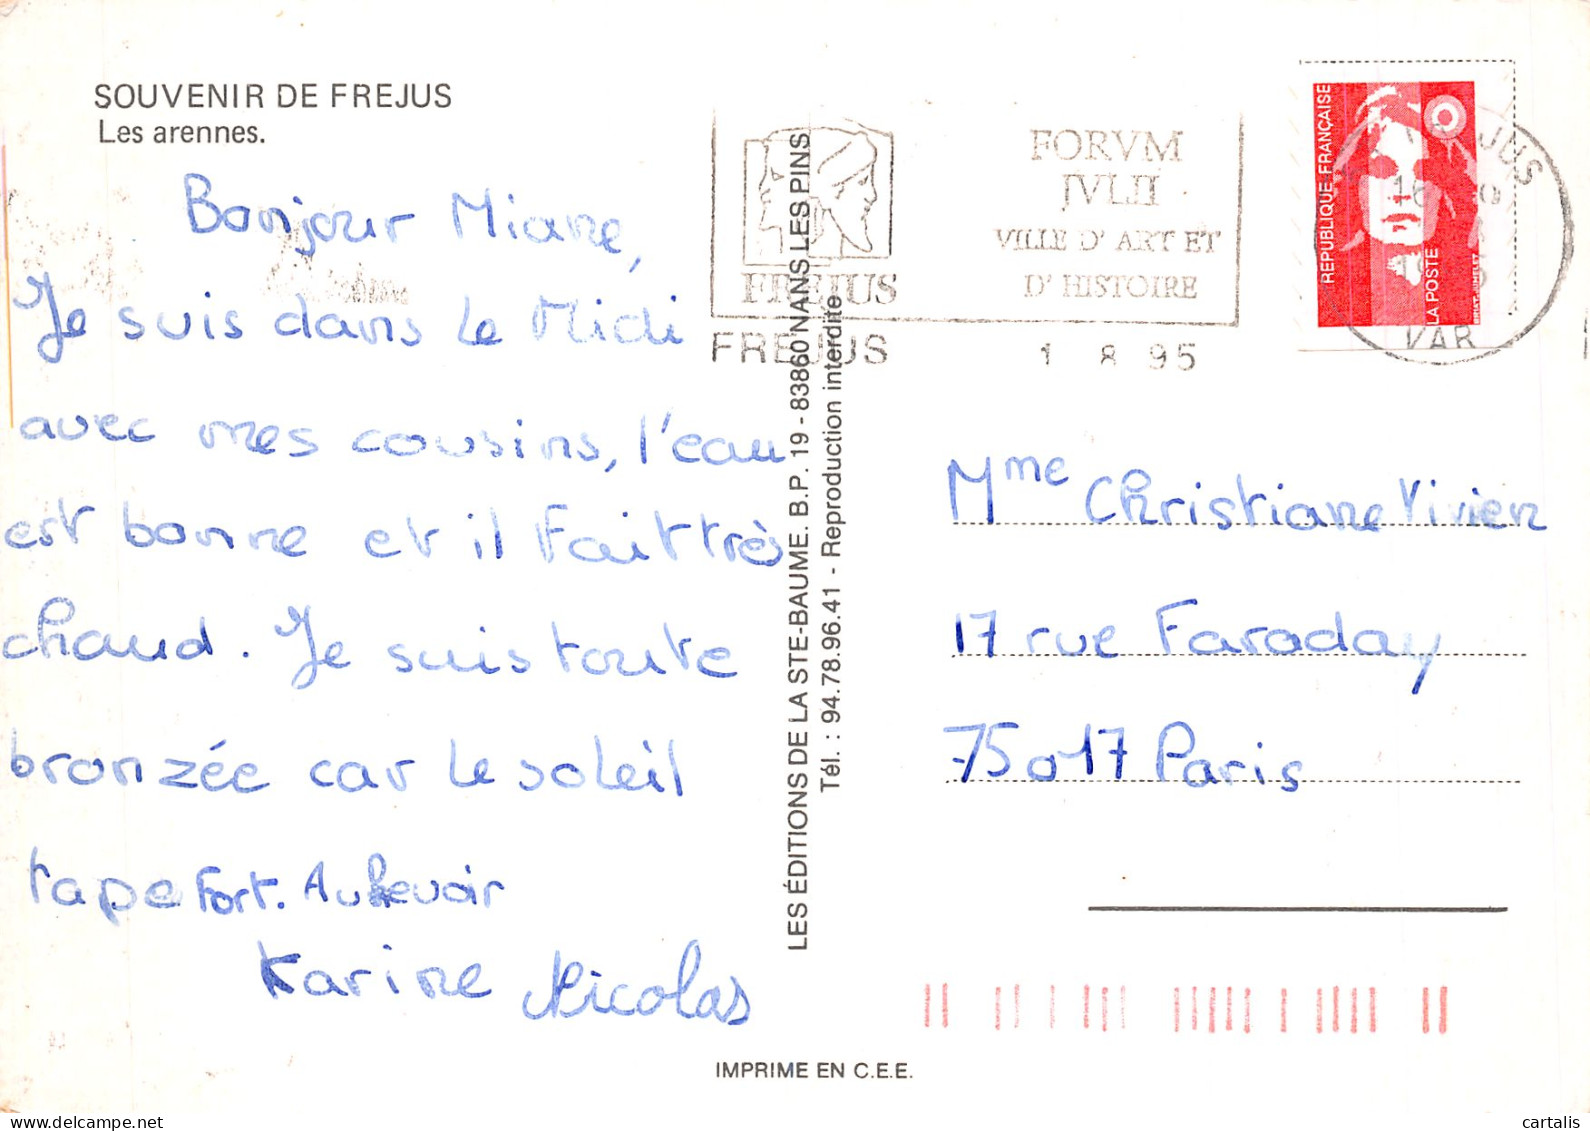 SOUVENIR DE FREJUS
Les arennes.
Bonjour Miane,
Je suis dans le Midi
avec mes cousins, l'eau
est bonne et il Fait très
chaud. Je suis toute
bronzée car le soleil
tape Fort. Au Revoir
Karine Nicolas
LES ÉDITIONS DE LA STE-BAUME. B.P. 19 - 83860 NANS LES PINS
Tél. : 94.78.96.41 - Reproduction interdite
FREJUS
FORVM
IVLII
VILLE D'ART ET
D'HISTOIRE
FREJUS
1 8 95
REPUBLIQUE FRANÇAISE
LA POSTE
JUS
VAR
Mme Christiane Vivien
17 rue Faraday
75017 Paris
IMPRIME EN C.E.E.
delcampe.net
cartalis